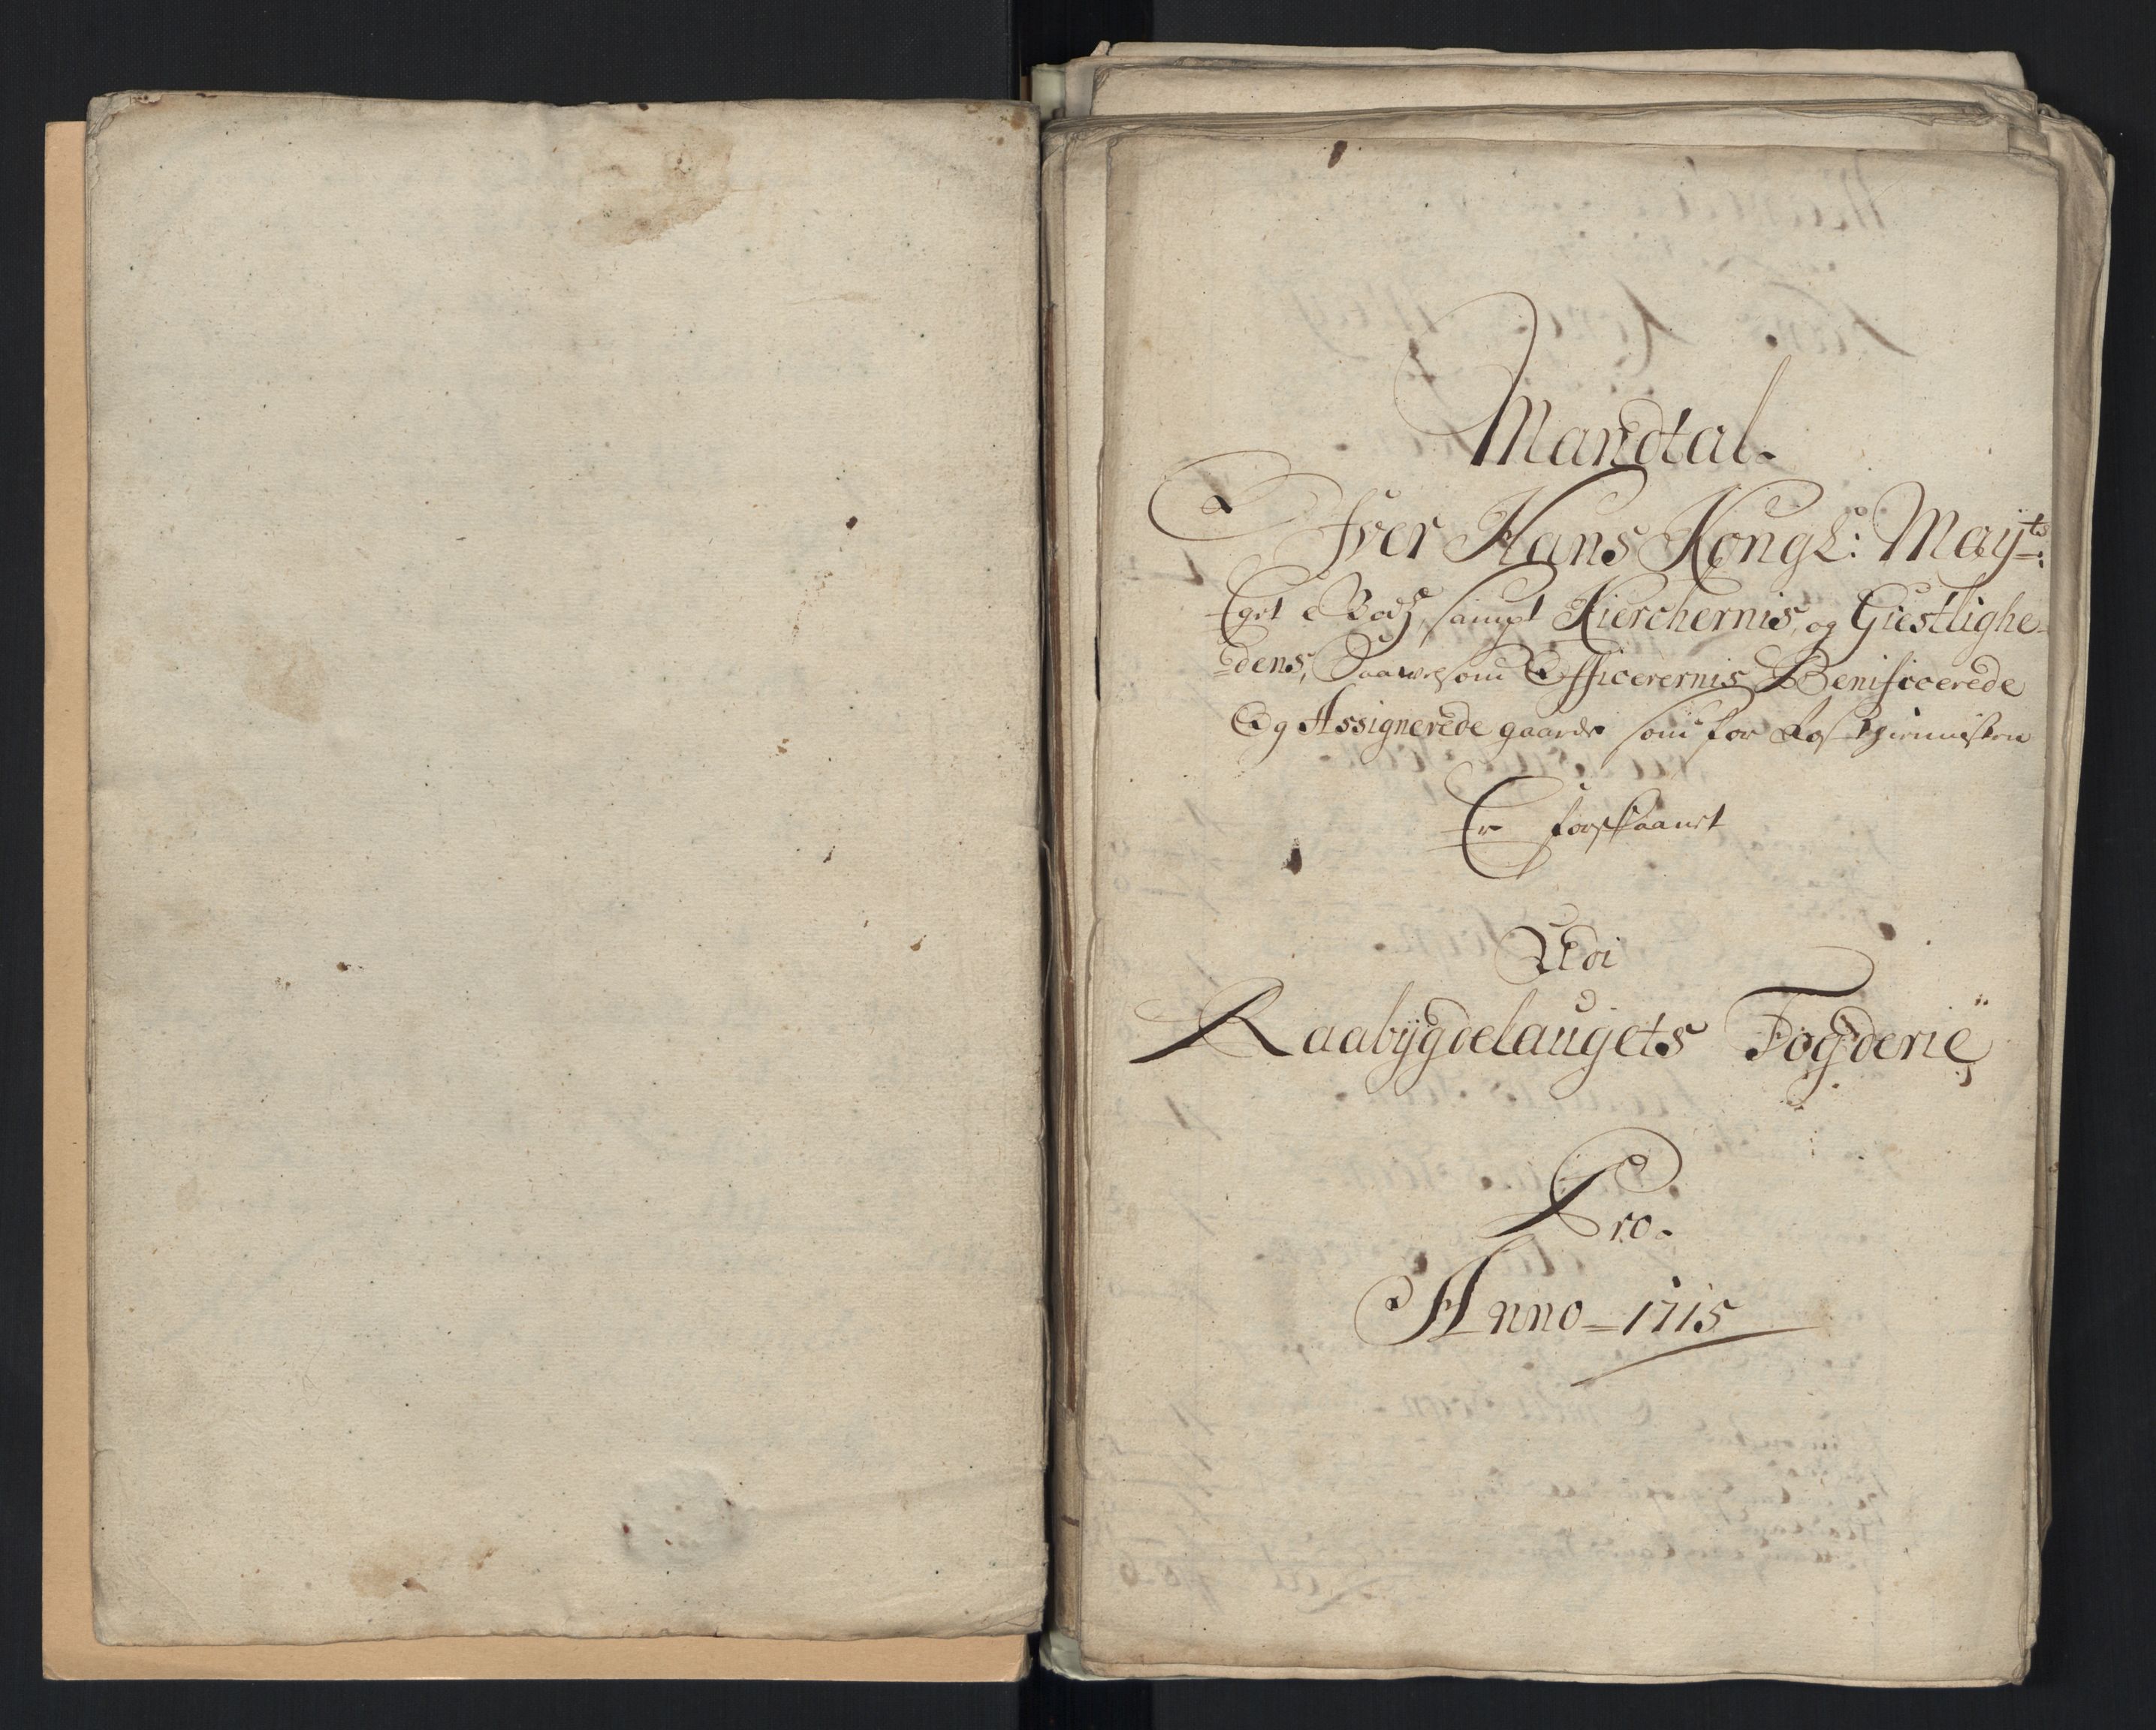 Mandtal.
Ofver Hans Kongl: Maÿts:
Eget Bodz, sampt Kierchernis, og Giestlighe-
dens, Saawelsom Officerernis Benificcerede
Og Assignerede gaarde som for Rosthienniste
Er forskaanet
Udi
Raabÿgdelaugets Fogderie
Pro.
Anno = 1715